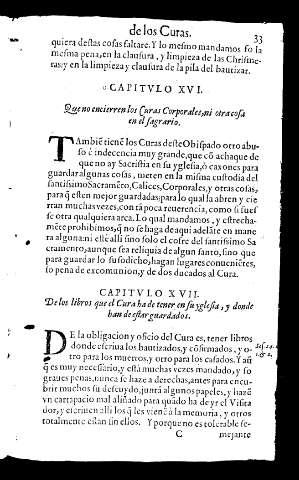 de los Curas. 33
quiera destas cosas faltare. Y lo mesmo mandamos so la
mesma pena, en la clausura, y limpieza de las Chrisme-
ras, y en la limpieza y clausura de la pila del bautizar.
CAPITVLO XVI.
Que no encierren los Curas Corporales, ni otra cosa
en el sagrario.
TAmbiē tienē los Curas deste Obispado otro abu-
so è indecencia muy grande, que cō achaque de
que no ay Sacristia en su yglesia, ò caxones para
guardar algunas cosas, meten en la misma custodia del
santissimo Sacramēto, Calices, Corporales, y otras cosas,
para q̃ esten mejor guardadas: para lo qual la abren y cie
rran muchas vezes, con tā poca reuerencia, como si fues
se otra qualquiera arca. Lo qual mandamos, y estrecha-
mēte prohibimos, q̃ no se haga de aqui adelāte en mane
ra alguna: ni estè alli sino solo el cofre del santissimo Sa
cramento, aunque sea reliquia de algun santo, sino que
para guardar lo susodicho, hagan lugares conueniētes,
so pena de excomunion, y de dos ducados al Cura.
CAPITVLO XVII.
De los libros que el Cura ha de tener en su yglesia, y donde
han de estar guardados.
DE la obligacion y oficio del Cura es, tener libros
donde escriua los bautizados, y cōfirmados, y o-
tro para los muertos, y otro para los casados. Y aũ
q̃ es muy necessario, y està muchas vezes mandado, y so
graues penas, nunca se haze a derechas, antes para encu-
brir muchos su descuydo, juntā algunos papeles, y hazē
vn cartapacio mal aliñado para quādo ha de yr el Visita
dor, y escriuen alli los q̃ les vienē a la memoria, y otros
totalmente estan sin ellos. Y porque no es tolerable se-
C mejante